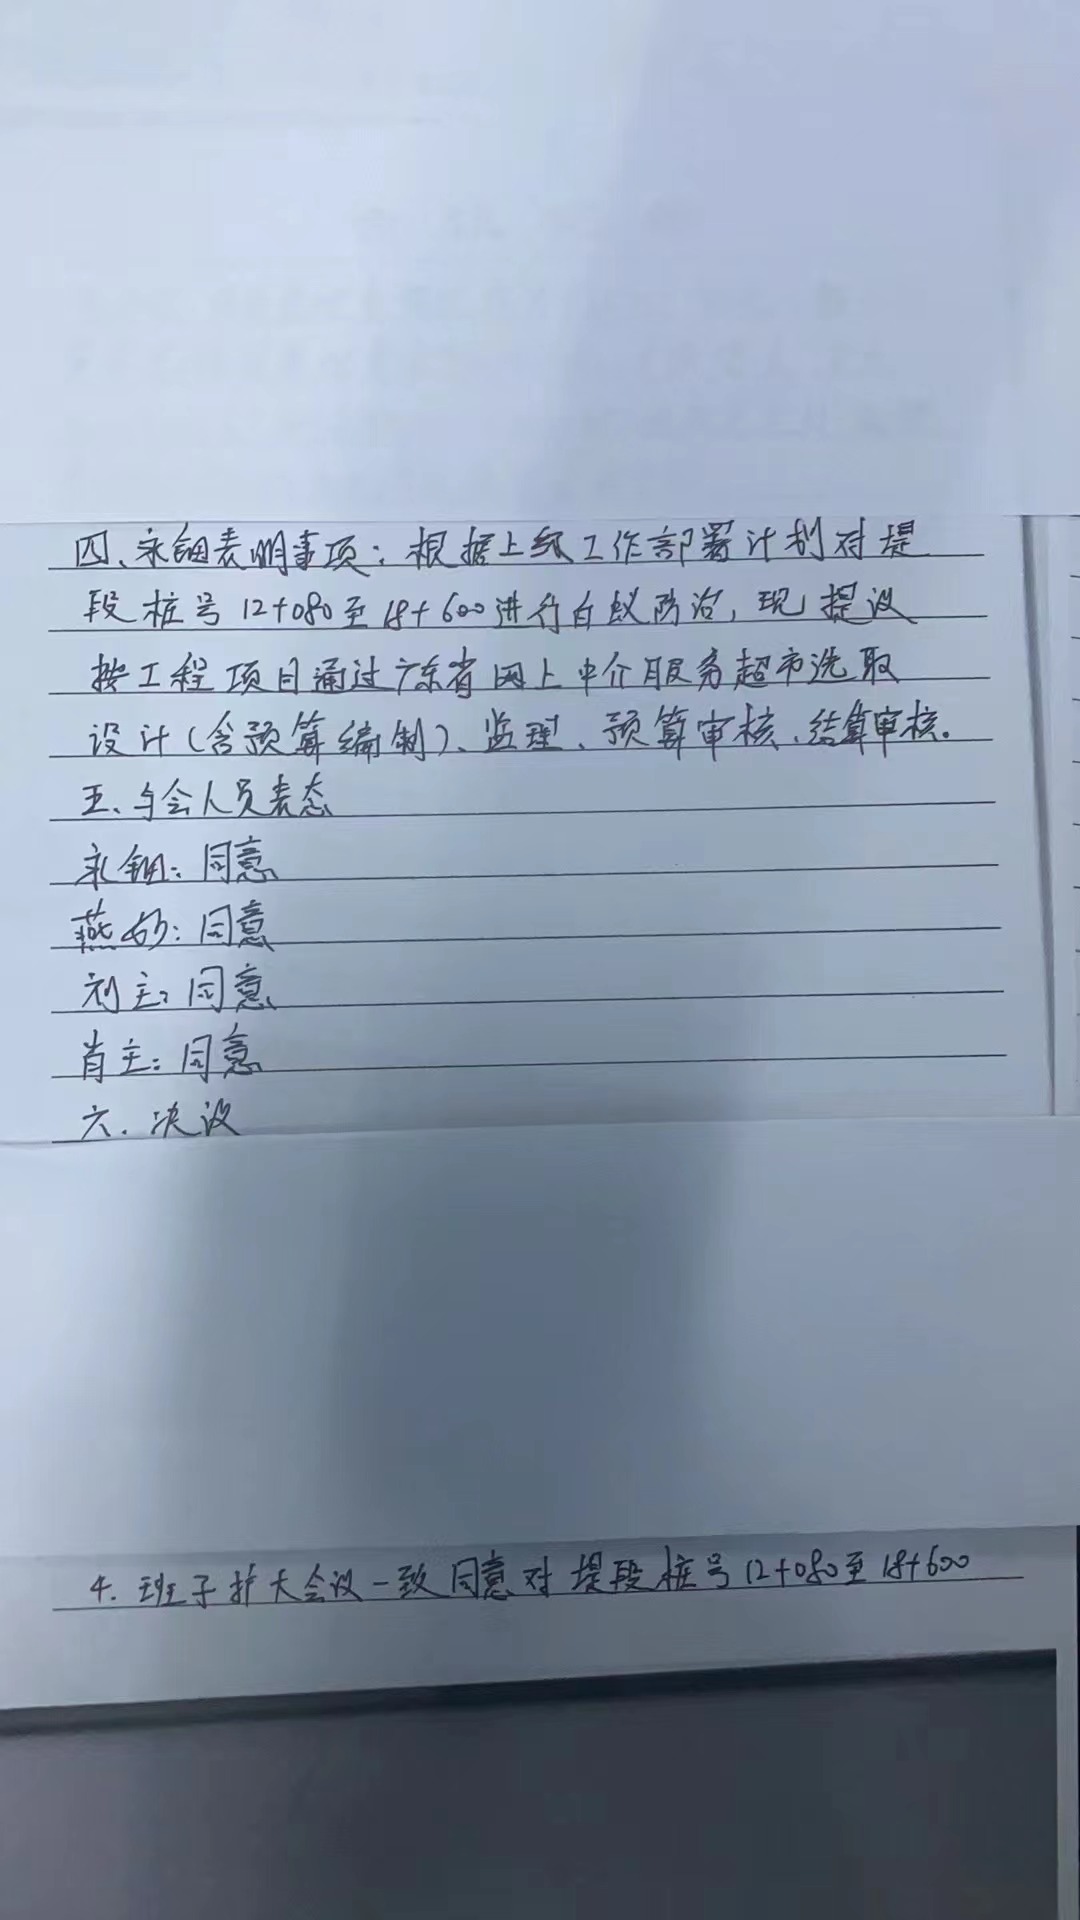 四、永钿表明事项：根据上级工作部署计划对堤
段桩号12+080至18+600进行白蚁防治，现提议
按工程项目通过广东省网上中介服务超市选取
设计（含预算编制）、监理、预算审核、结算审核。
五、与会人员表态
永钿：同意
燕妙：同意
刘主：同意
肖主：同意
六、决议
4．班子扩大会议一致同意对堤段桩号12+080至18+600